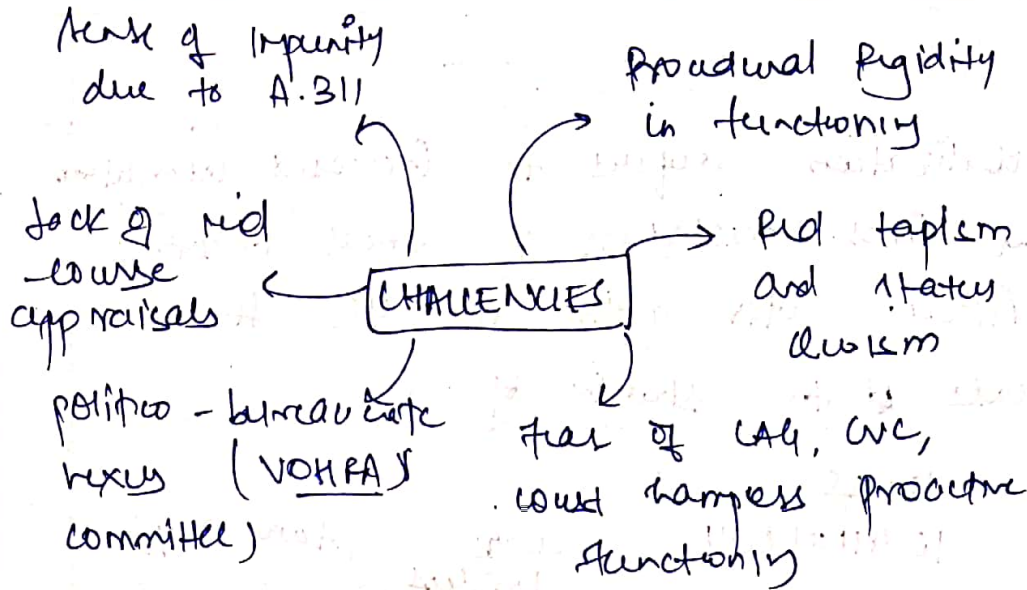 Sense of Impunity
due to A.311
Procedural Rigidity
in functioning
Lack of mid
-course
appraisals
CHALLENGES
Red tapism
and status
quoism
politico-bureaucratic
nexus (VOHRA
committee)
fear of CAG, CVC,
court hampers proactive
functioning